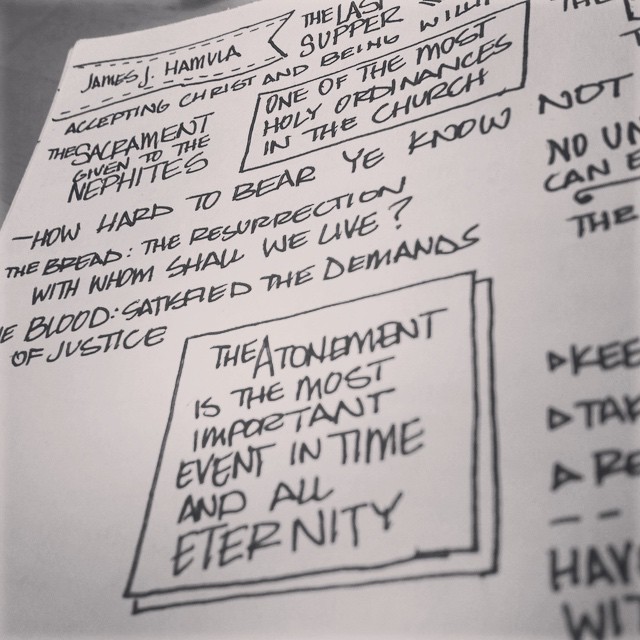 JAMES J. HAMULA
THE LAST
SUPPER
ACCEPTING CHRIST AND BEING
THE SACRAMENT
GIVEN TO THE
NEPHITES
ONE OF THE MOST
HOLY ORDINANCES
IN THE CHURCH
—HOW HARD TO BEAR YE KNOW NOT
THE BREAD: THE RESURRECTION
WITH WHOM SHALL WE LIVE?
E BLOOD: SATISFIED THE DEMANDS
OF JUSTICE
THE ATONEMENT
IS THE MOST
IMPORTANT
EVENT IN TIME
AND ALL
ETERNITY
THE
NO UN
CAN E
THE
KEE
TAK
RE
HAV
WIT